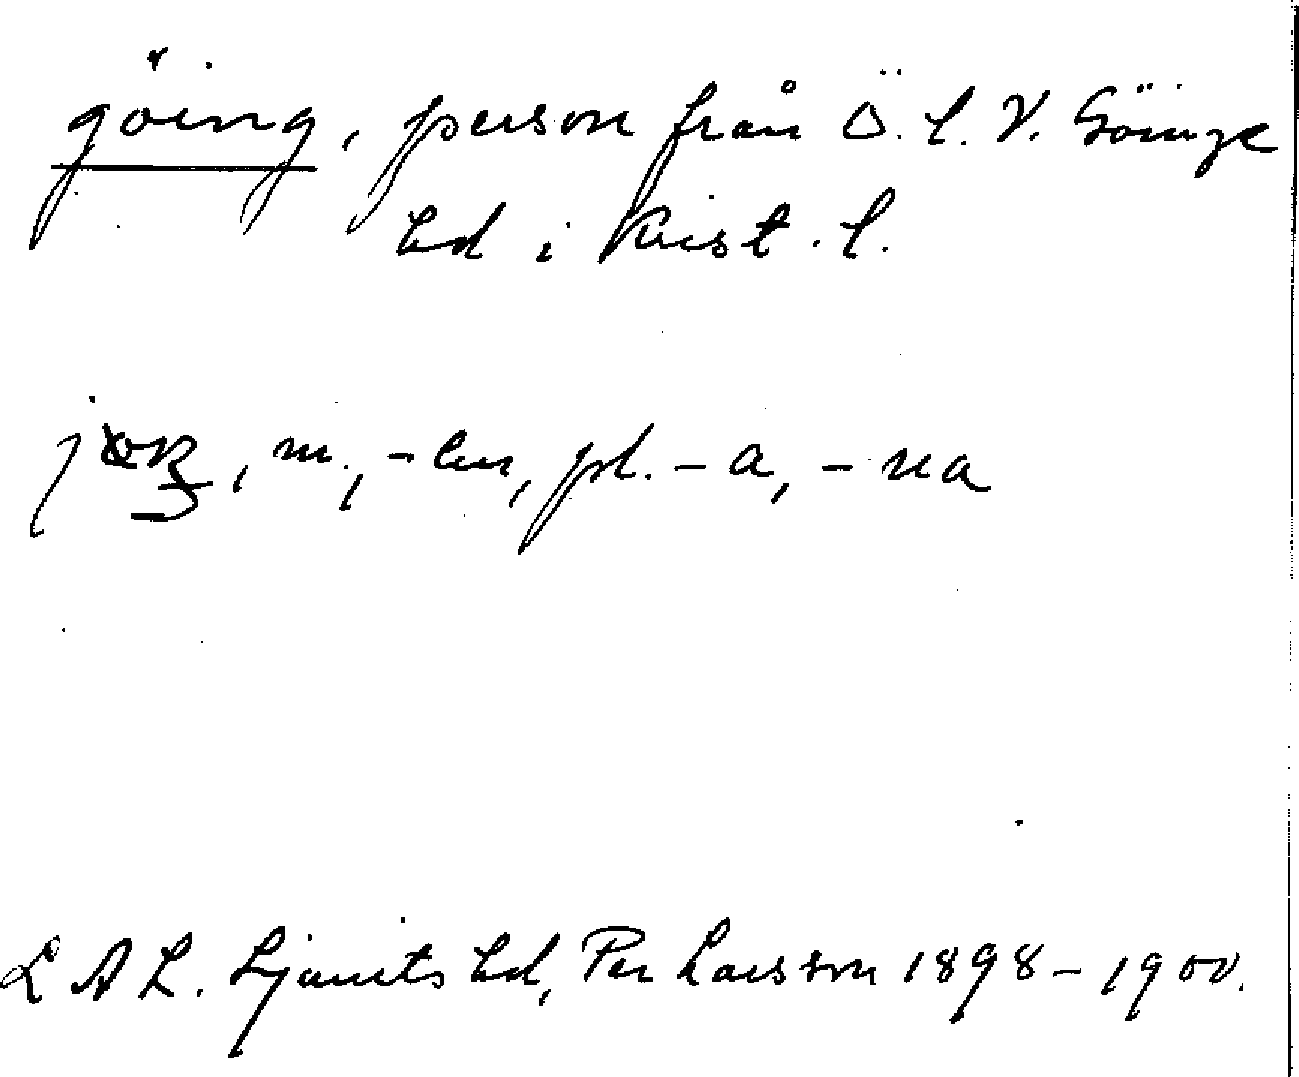 göing, person från Ö. l. V. Göinge
hd i Krist. l.
, m., -en, pl. -a, -na
L A L. Ljunits hd, Per Larsson 1898-1900.